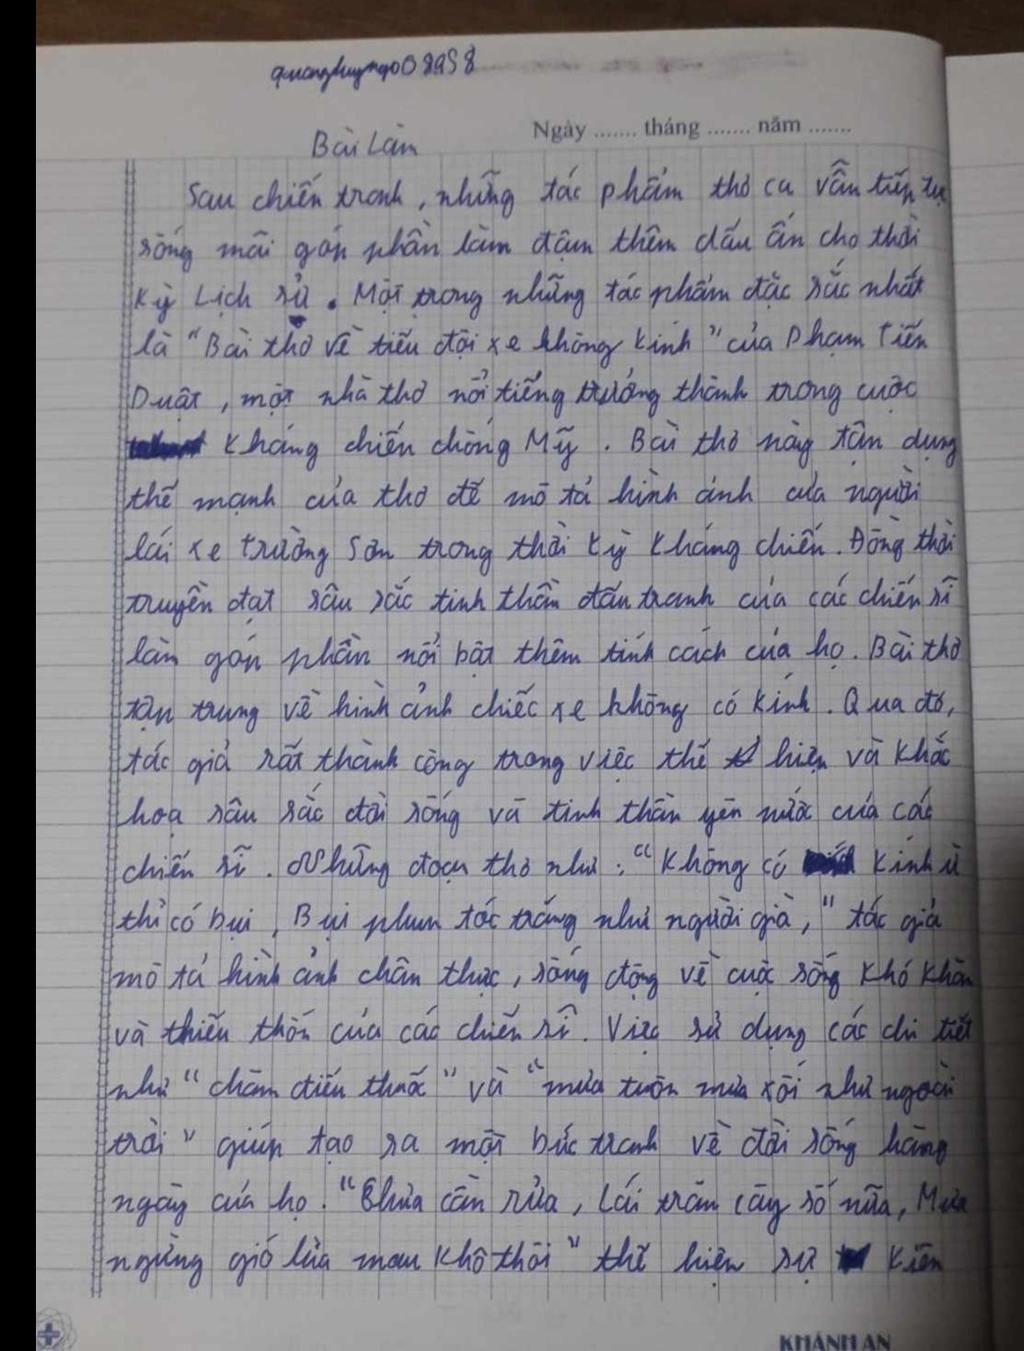 quanghuyngo08958
Ngày ....... tháng ....... năm .......
Bài Làm
Sau chiến tranh, những tác phẩm thơ ca vẫn tiếp tục
sống mãi góp phần làm đậm thêm dấu ấn cho thời
kỳ Lịch sử. Một trong những tác phẩm đặc sắc nhất
là "Bài thơ về tiểu đội xe không kính" của Phạm Tiến
Duật, một nhà thơ nổi tiếng trưởng thành trong cuộc
kháng chiến chống Mỹ. Bài thơ này tận dụng
thế mạnh của thơ để mô tả hình ảnh của người
lái xe trường Sơn trong thời kỳ kháng chiến. Đồng thời
truyền đạt sâu sắc tinh thần đấu tranh của các chiến sĩ
làn góp phần nổi bật thêm tính cách của họ. Bài thơ
tập trung về hình ảnh chiếc xe không có kính. Qua đó,
tác giả rất thành công trong việc thể hiện và khắc
hoạ sâu sắc đời sống và tinh thần yên nước của các
chiến sĩ. Những đoạn thơ như: "Không có kính ừ
thì có bụi, Bụi phun tóc trắng như người già," tác giả
mô tả hình ảnh chân thực, sống động về cuộc sống khó khăn
và thiếu thốn của các chiến sĩ. Việc sử dụng các chi tiết
như "châm điếu thuốc" và "mưa tuôn mưa xối như ngoài
trời" giúp tạo ra một bức tranh về đời sống hàng
ngày của họ. "Chưa cần rửa, Lái trăm cây số nữa, Mưa
ngừng gió lùa mau khô thôi" thể hiện sự kiên
KHÁNH AN